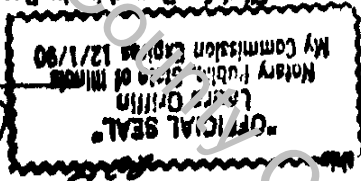 "OFFICIAL SEAL"
Laura Griffin
Notary Public, State of Illinois
My Commission Expires 12/1/90
County